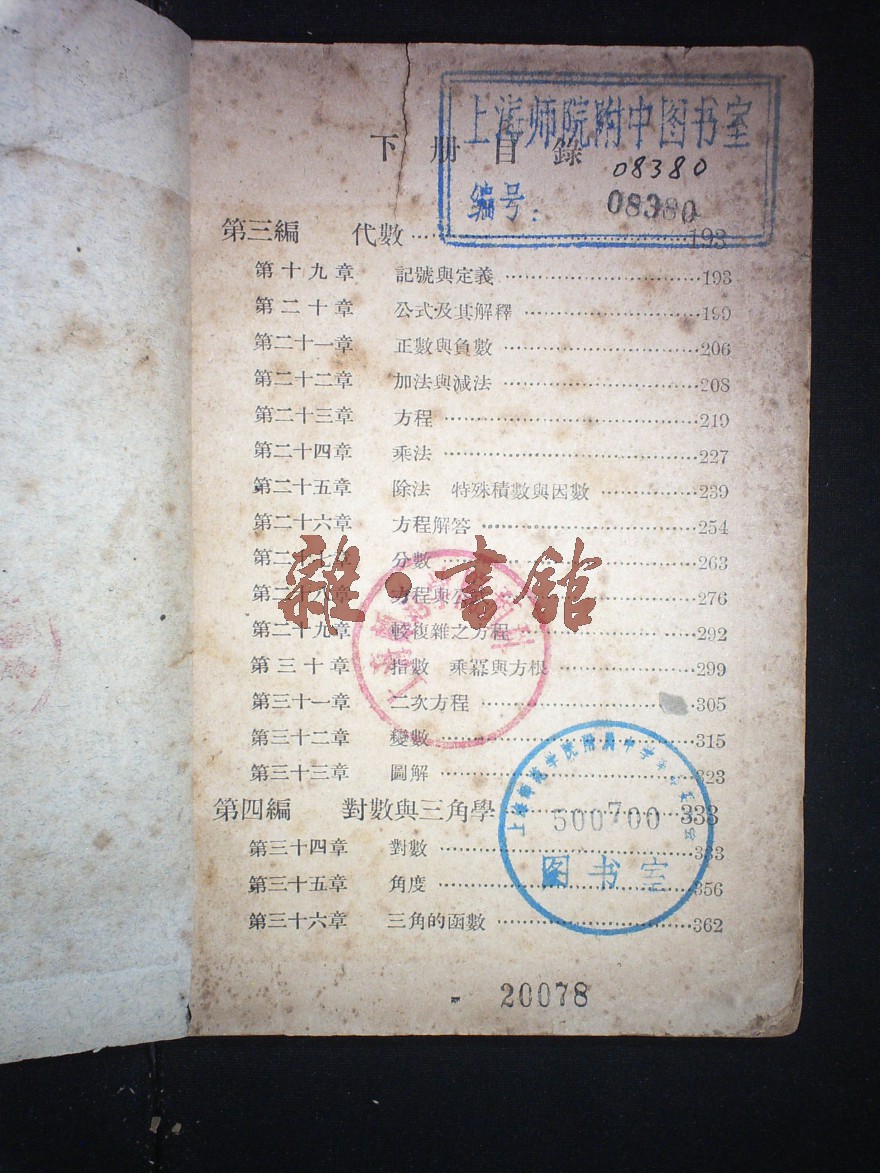 上海师院附中图书室
下册目錄
08380
编号：
08380
第三編 代數 193
第十九章 記號與定義 193
第二十章 公式及其解釋 199
第二十一章 正數與負數 206
第二十二章 加法與減法 208
第二十三章 方程 219
第二十四章 乘法 227
第二十五章 除法 特殊積數與因數 239
第二十六章 方程解答 254
第二十七章 分數 263
雜·書館
第二十八章 方程與公式 276
第二十九章 較複雜之方程 292
第三十章 指數 乘冪與方根 299
第三十一章 二次方程 305
第三十二章 變數 315
第三十三章 圖解 323
第四編 對數與三角學 333
上海師范学院附屬中学
500700
图书室
第三十四章 對數 333
第三十五章 角度 356
第三十六章 三角的函數 362
20078